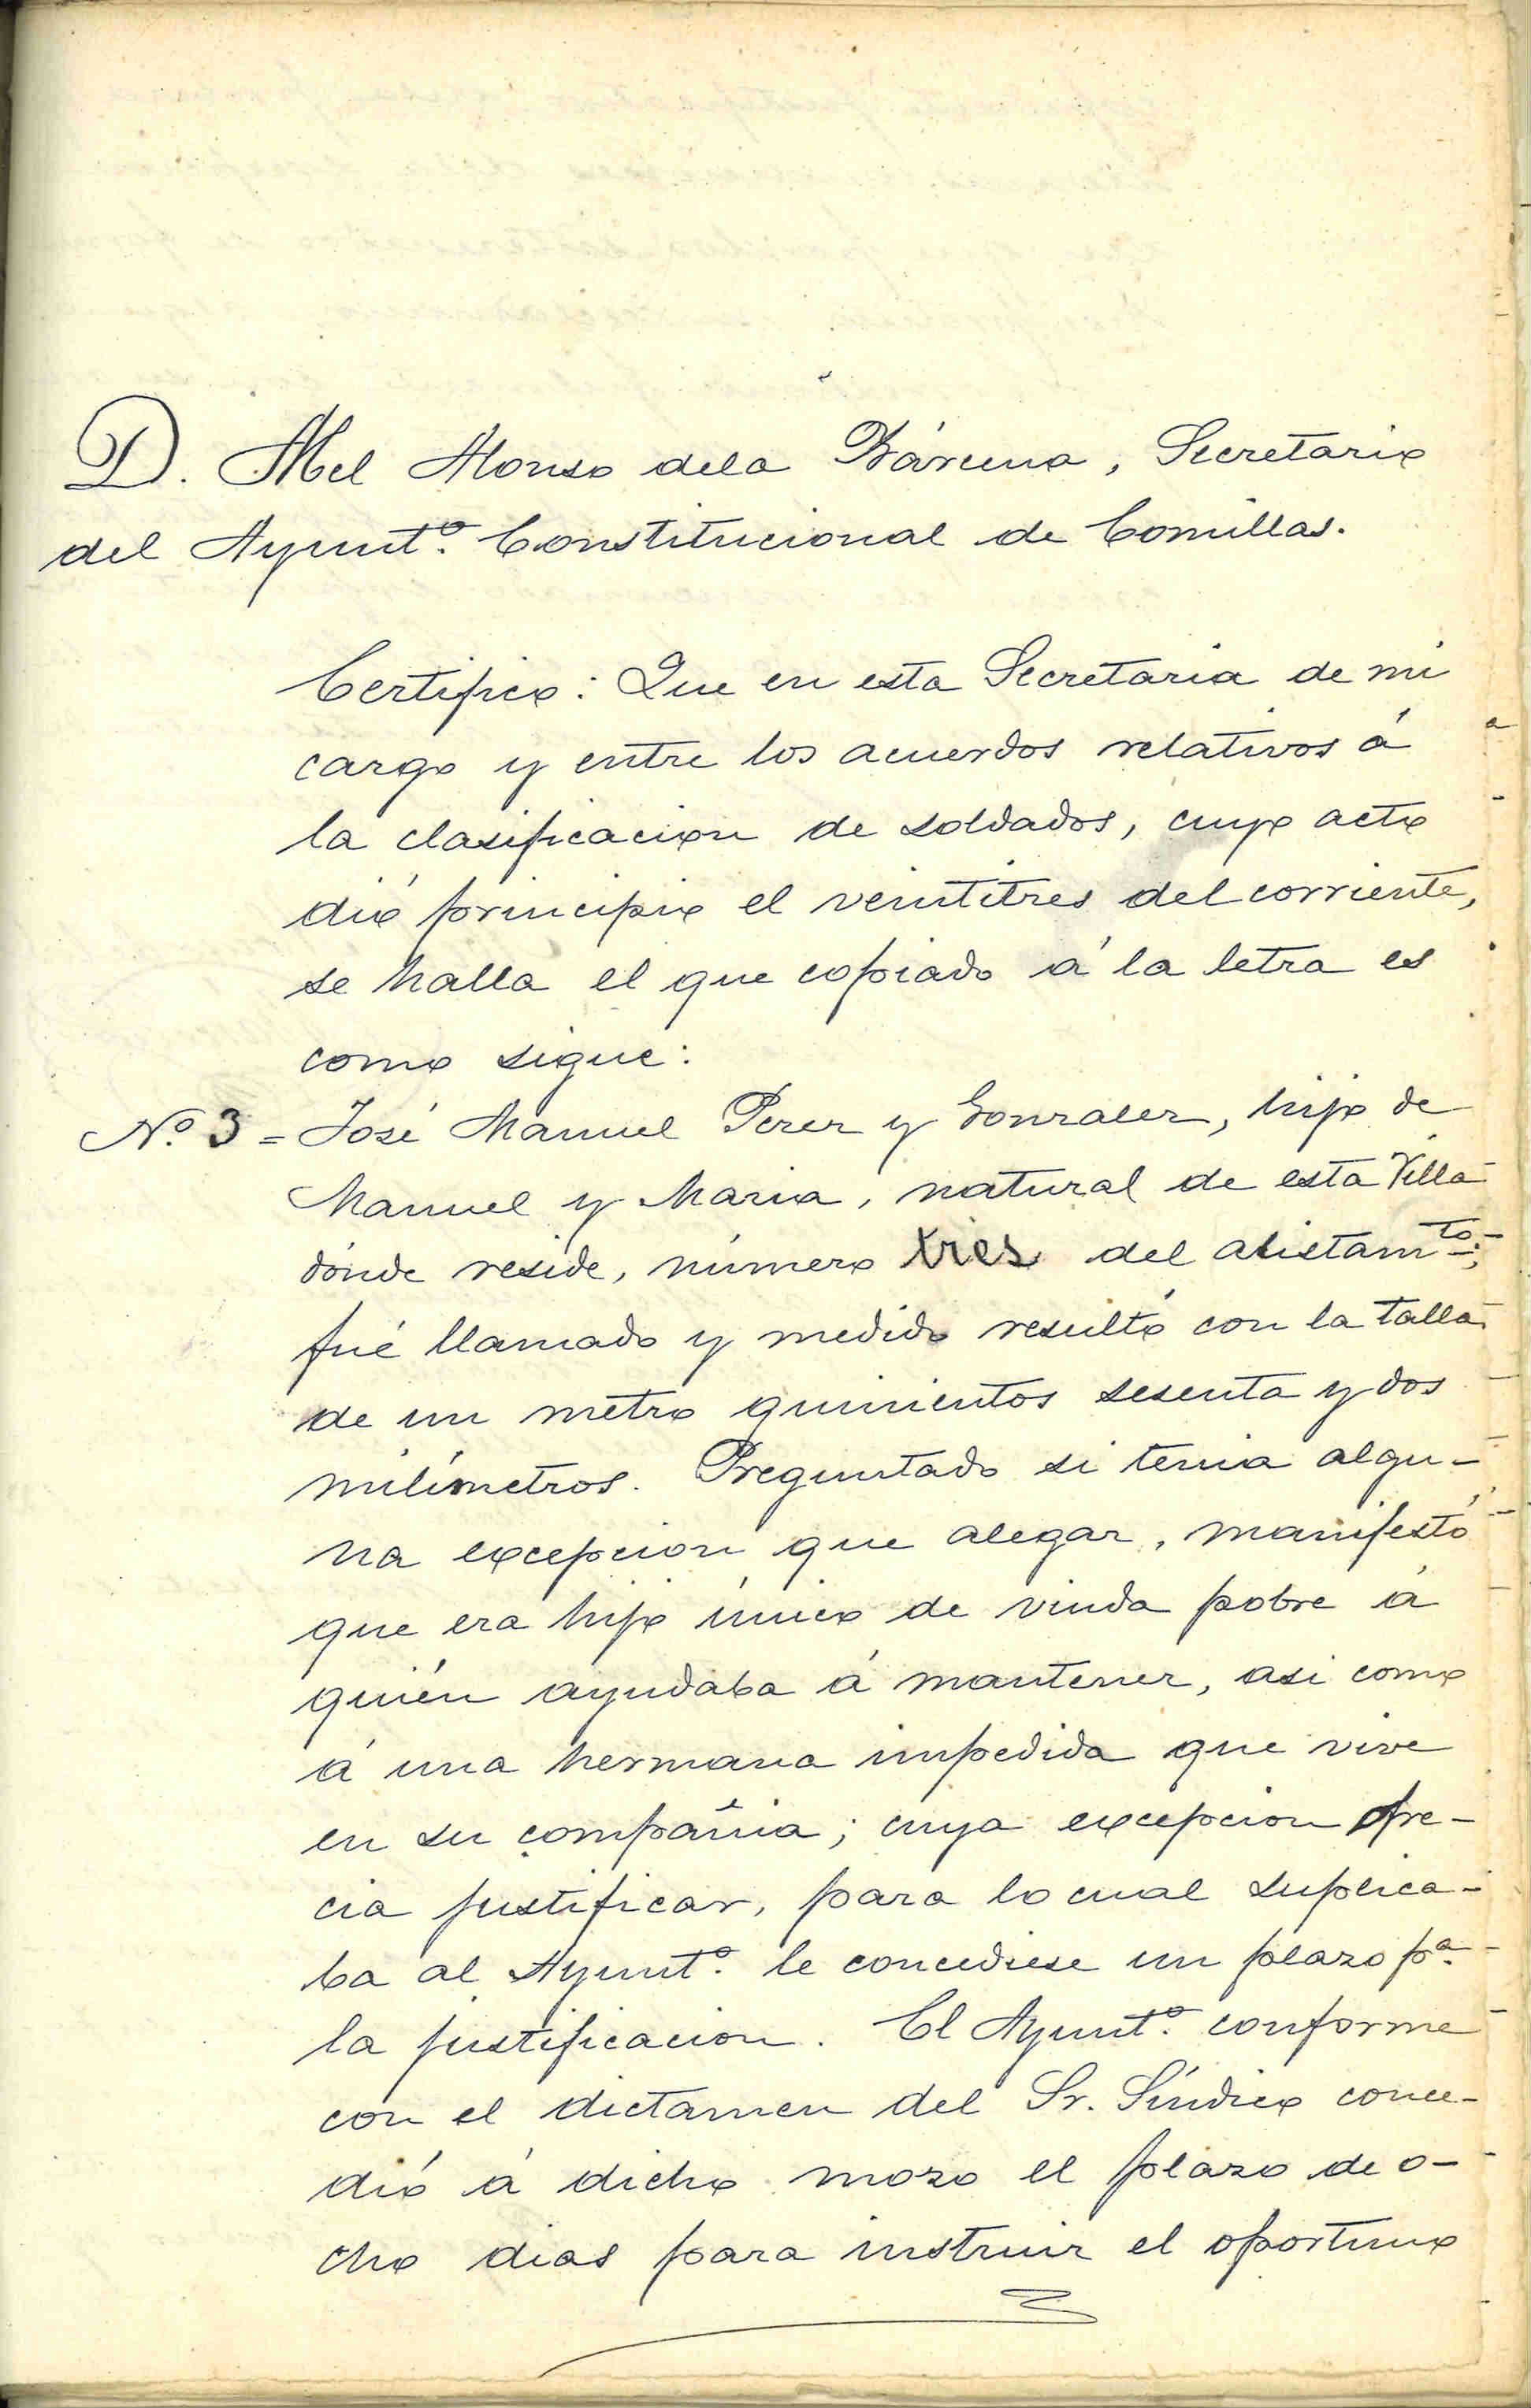 D. Abel Alonso dela Bárcena, Secretario
del Ayuntº. Constitucional de Comillas.
Certifico: Que en esta Secretaria de mi
cargo y entre los acuerdos relativos á
la clasificacion de soldados, cuyo acto
dió principio el veintitres del corriente,
se halla el que copiado á la letra es
como sigue:
Nº. 3 = José Manuel Perez y Gonzalez, hijo de
Manuel y Maria, natural de esta Villa
dónde reside, número tres del alistamto.;
fué llamado y medido resultó con la talla
de un metro quinientos sesenta y dos
milímetros. Preguntado si tenia algu-
na excepcion que alegar, manifestó
que era hijo único de viuda pobre á
quién ayudaba á mantener, asi como
á una hermana impedida que vive
en su compañia; cuya excepcion ofre-
cia justificar, para lo cual suplica-
ba al Ayuntº. le concediese un plazo pª.
la justificacion. El Ayuntº. conforme
con el dictamen del Sr. Síndico conce-
dió á dicho mozo el plazo de o-
cho dias para instruir el oportuno